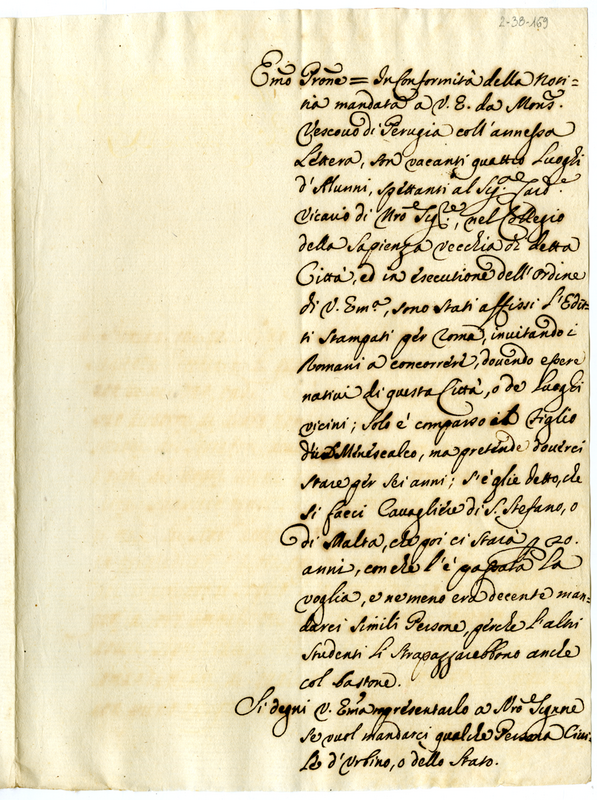 2-38-169
Emo Prone = In conformità della Noti=
tia mandata a V. E. da Mons.
Vescovo di Perugia coll'annessa
Lettera, son vacanti quattro Luoghi
d'Alunni, spettanti al Sig.e Card.e
Vicario di Nro Sig.re, nel Collegio
della Sapienza vecchia di detta
Città, ed in esecutione dell'ordine
di V. Em.a, sono stati affissi l'Edit=
ti stampati per Roma, invitando i
Romani a concorrere, dovendo essere
nativi di questa Città, o de Luoghi
vicini; solo è comparso il figlio
Minescalco, ma pretende doverci
stare per sei anni; s'è glie detto, che
si facci Cavagliere di S. Stefano, o
di Malta, che poi ci starà p 20.
anni, con che l'è passata la
voglia, e ne meno era decente man=
darci simili Persone, perche l'altri
studenti li strapazzarebbono anche
col bastone.
Si degni V. Ema rapresentarlo a Nro Signre
se vuol mandarci qualche Persona Civi=
le d'Urbino, o dello Stato.